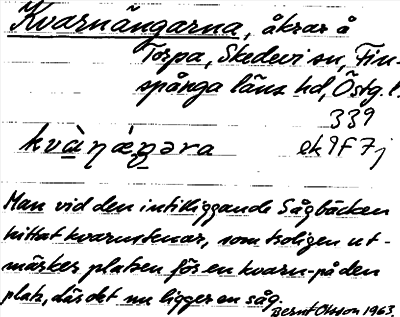 Kvarnängarna, åkrar å
Torpa, Skedevi sn, Fin-
spånga läns hd, Östg. l.
339
kvàŋæŋəra ek 9F7j
Man vid den intilliggande Sågbäcken
hittat kvarnstenar, som troligen ut-
märker platsen för en kvarn på den
plats, där det nu ligger en såg.
Bernt Olsson 1963.